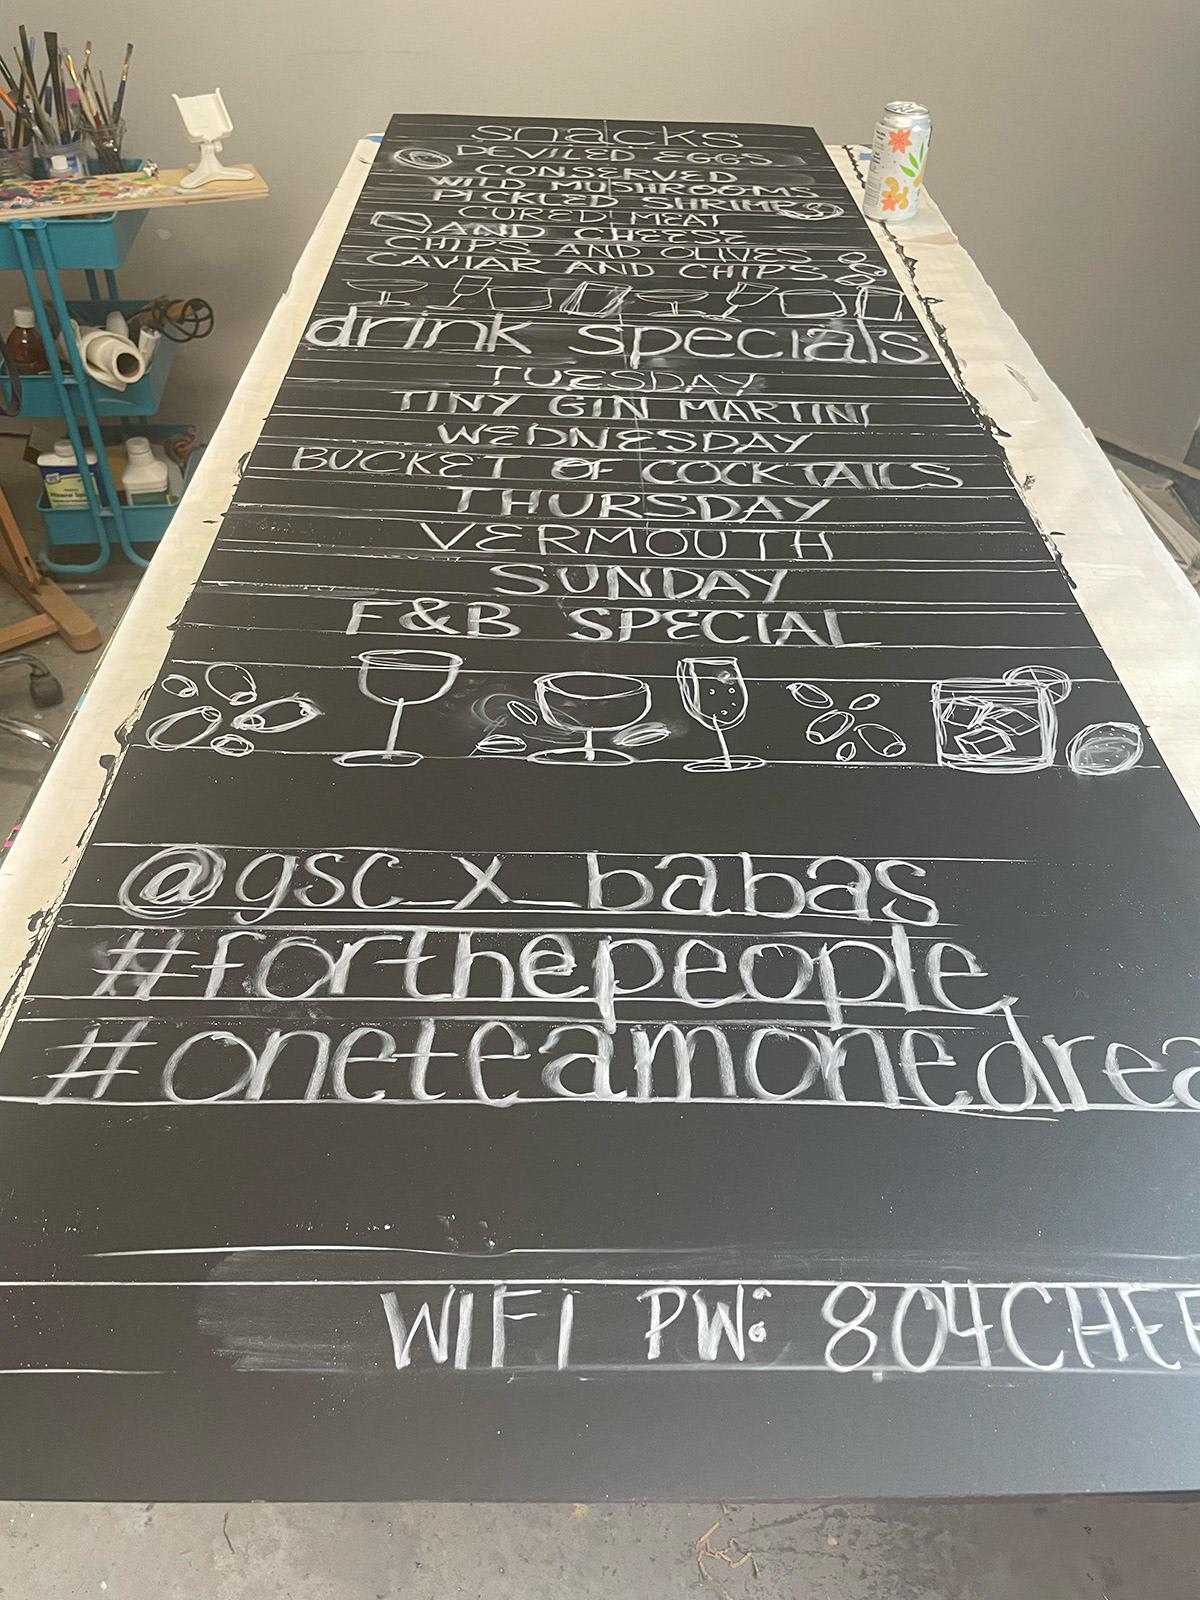 snacks
DEVILED EGGS
CONSERVED
WILD MUSHROOMS
PICKLED SHRIMP
CURED MEAT
AND CHEESE
CHIPS AND OLIVES
CAVIAR AND CHIPS
drink specials
TUESDAY
TINY GIN MARTINI
WEDNESDAY
BUCKET OF COCKTAILS
THURSDAY
VERMOUTH
SUNDAY
F&B SPECIAL
@gsc_x_babas
#forthepeople
#oneteamonedrea
WIFI PW: 804CHEE